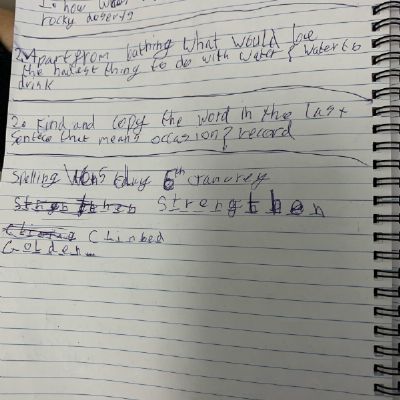 how
rocky deserts
2. Apart from bathing What would be
the hardest thing to do with Water? Water to
drink
2. Find and copy the word in the last
Sentece that means occasion? record
Spelling 6th Janurey
Strengthen
Climbed
Golden